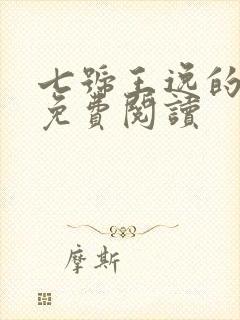 七號王逸的
免費閱讀
摩斯